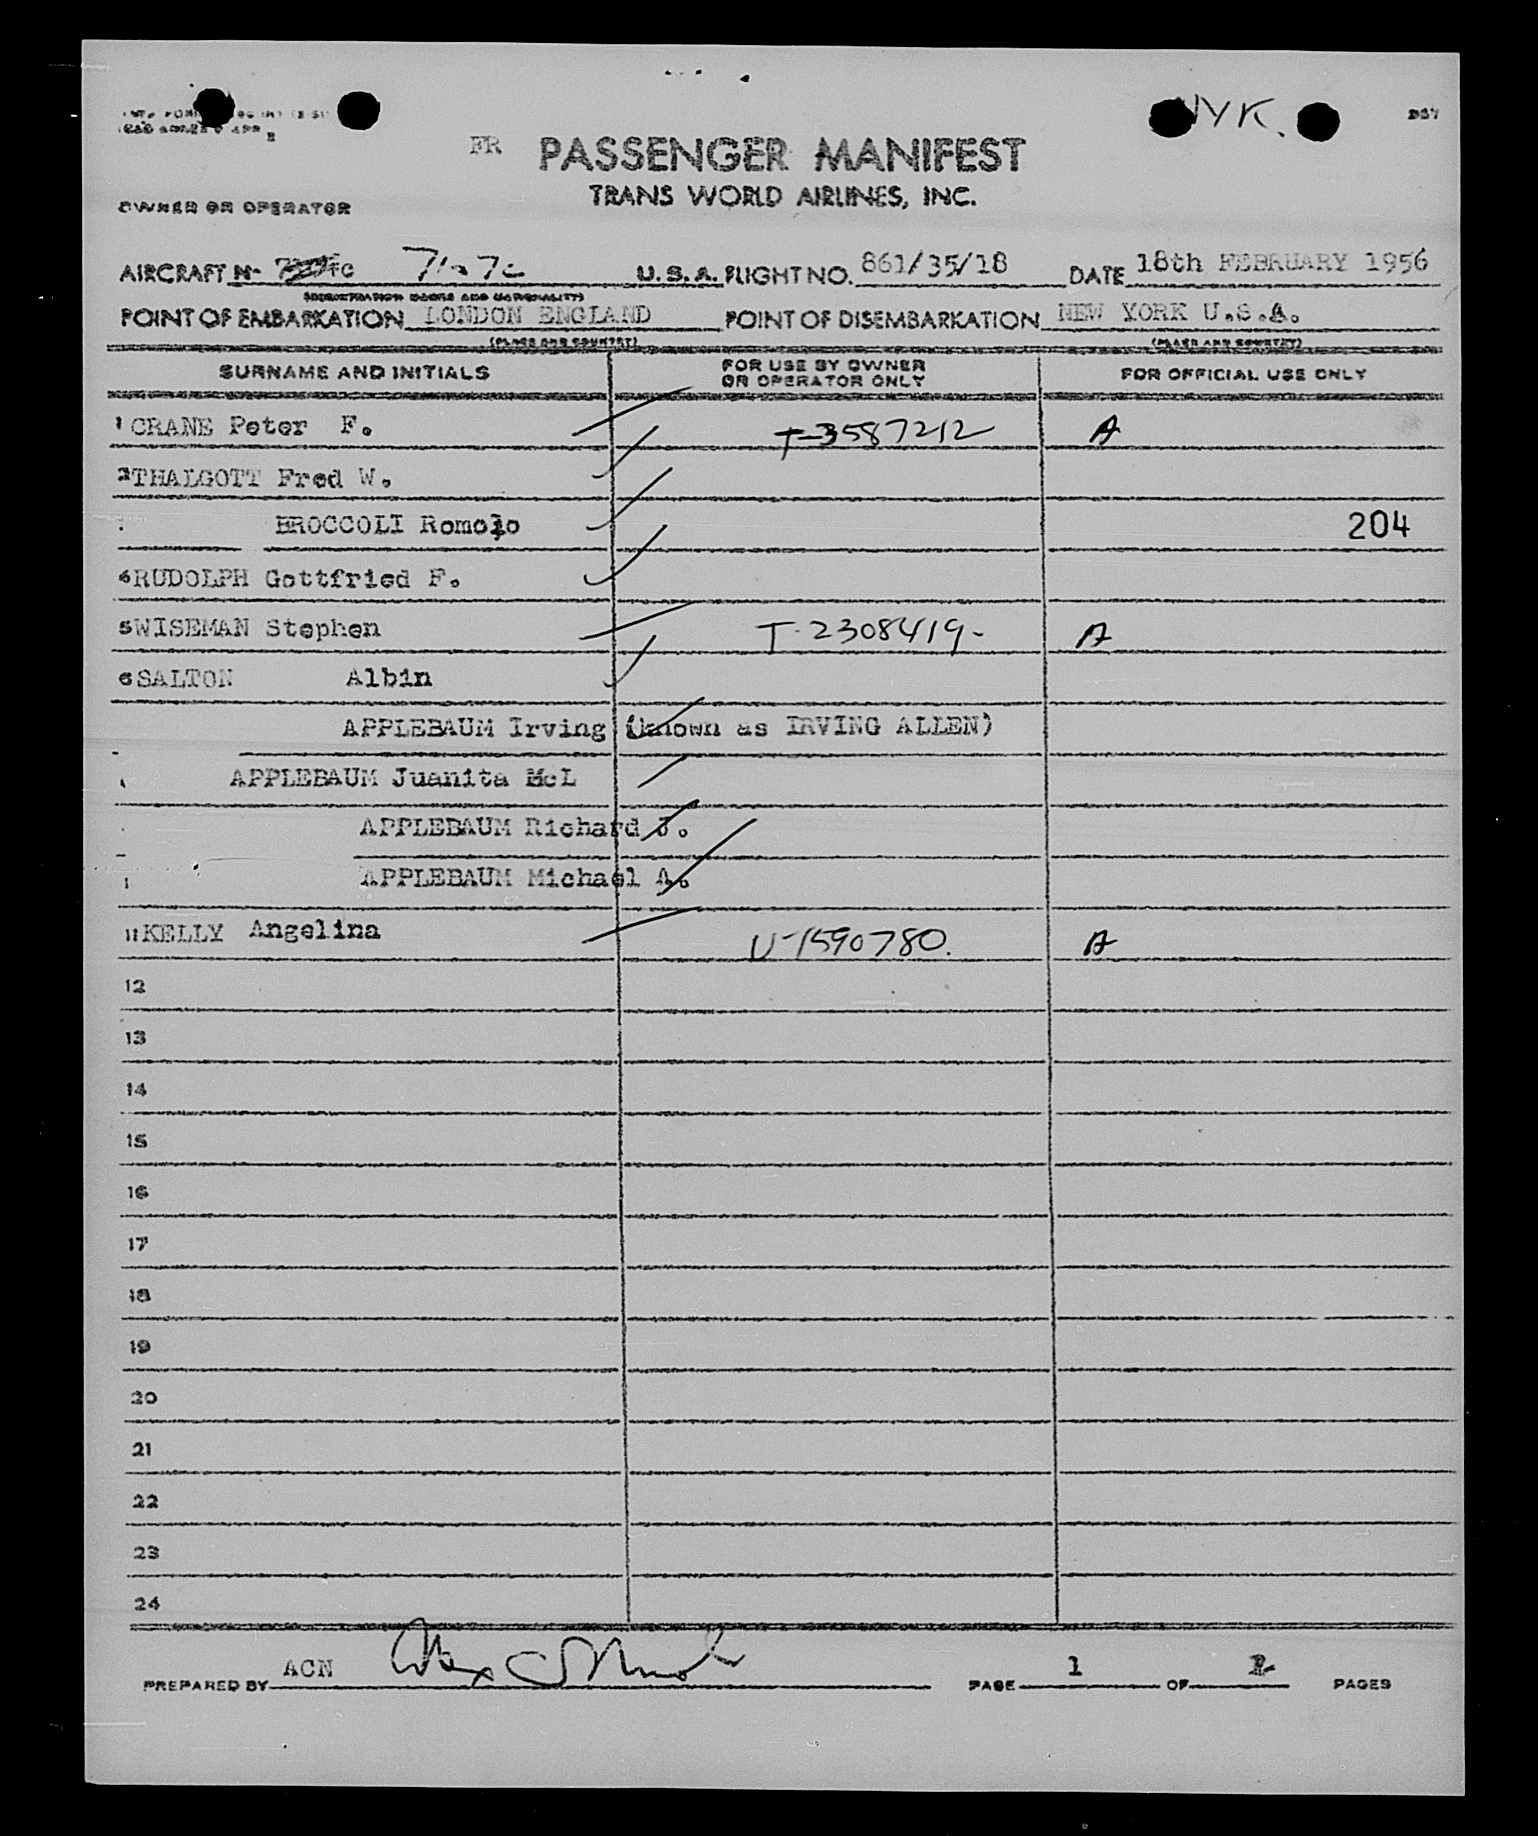 NYK.
FR PASSENGER MANIFEST
TRANS WORLD AIRLINES, INC.
OWNER OR OPERATOR
AIRCRAFT N- U.S.A. FLIGHT NO. 861/35/18 DATE 18th FEBRUARY 1956
POINT OF EMBARKATION LONDON ENGLAND POINT OF DISEMBARKATION NEW YORK U.S.A.
(PLACE AND COUNTRY) (PLACE AND COUNTRY)
SURNAME AND INITIALS FOR USE BY OWNER OR OPERATOR ONLY FOR OFFICIAL USE ONLY
1 CRANE Peter F. T-3587212 A
2 THALGOTT Fred W.
BROCCOLI Romolo 204
4 RUDOLPH Gottfried F.
5 WISEMAN Stephen T-2308419- A
6 SALTON Albin
APPLEBAUM Irving (known as IRVING ALLEN)
APPLEBAUM Juanita McL
APPLEBAUM Richard J.
APPLEBAUM Michael A.
11 KELLY Angelina U-1590780. A
12
13
14
15
16
17
18
19
20
21
22
23
24
PREPARED BY ACN PAGE 1 OF PAGES